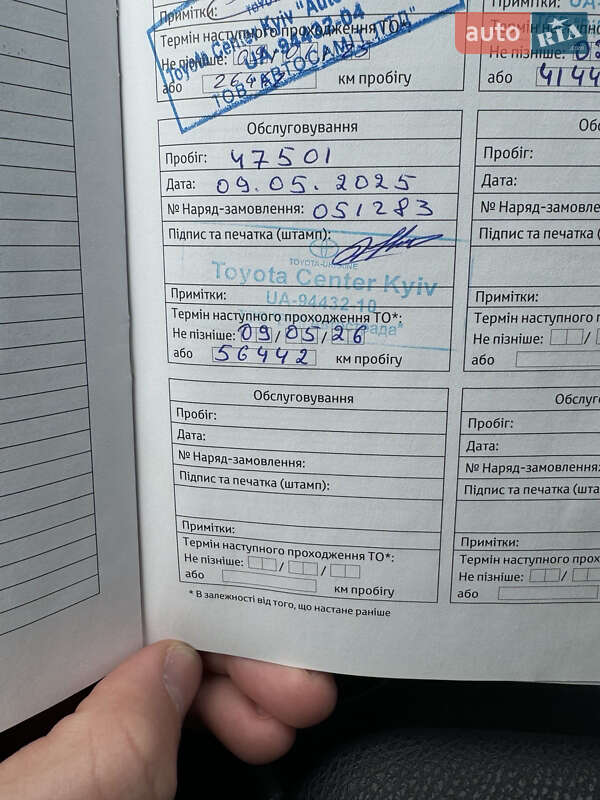 Примітки:
Toyota Center Kyiv "Auto
UA-94432-04
ТОВ "АВТОСАМІТ ЛТД"
Термін наступного проходження ТО
Не пізніше:
або
км пробігу
Обслуговування
Пробіг: 47501
Дата: 09.05.2025
№ Наряд-замовлення: 051283
Підпис та печатка (штамп):
TOYOTA-UKRAINE
Toyota Center Kyiv
UA-94432 10
Примітки:
Термін наступного проходження ТО*:
Не пізніше: 09/05/26
або 56442 км пробігу
Обслуговування
Пробіг:
Дата:
№ Наряд-замовлення:
Підпис та печатка (штамп):
Примітки:
Термін наступного проходження ТО*:
Не пізніше: / /
або км пробігу
* В залежності від того, що настане раніше
auto RIA
Термін наступног
Не пізніше:
або 4144
Обсл
Пробіг:
Дата:
№ Наряд-замовлення
Підпис та печатка (ш
Примітки:
Термін наступного п
Не пізніше: /
або
Обслуго
Пробіг:
Дата:
№ Наряд-замовлення:
Підпис та печатка (шта
Примітки:
Термін наступного про
Не пізніше: /
або